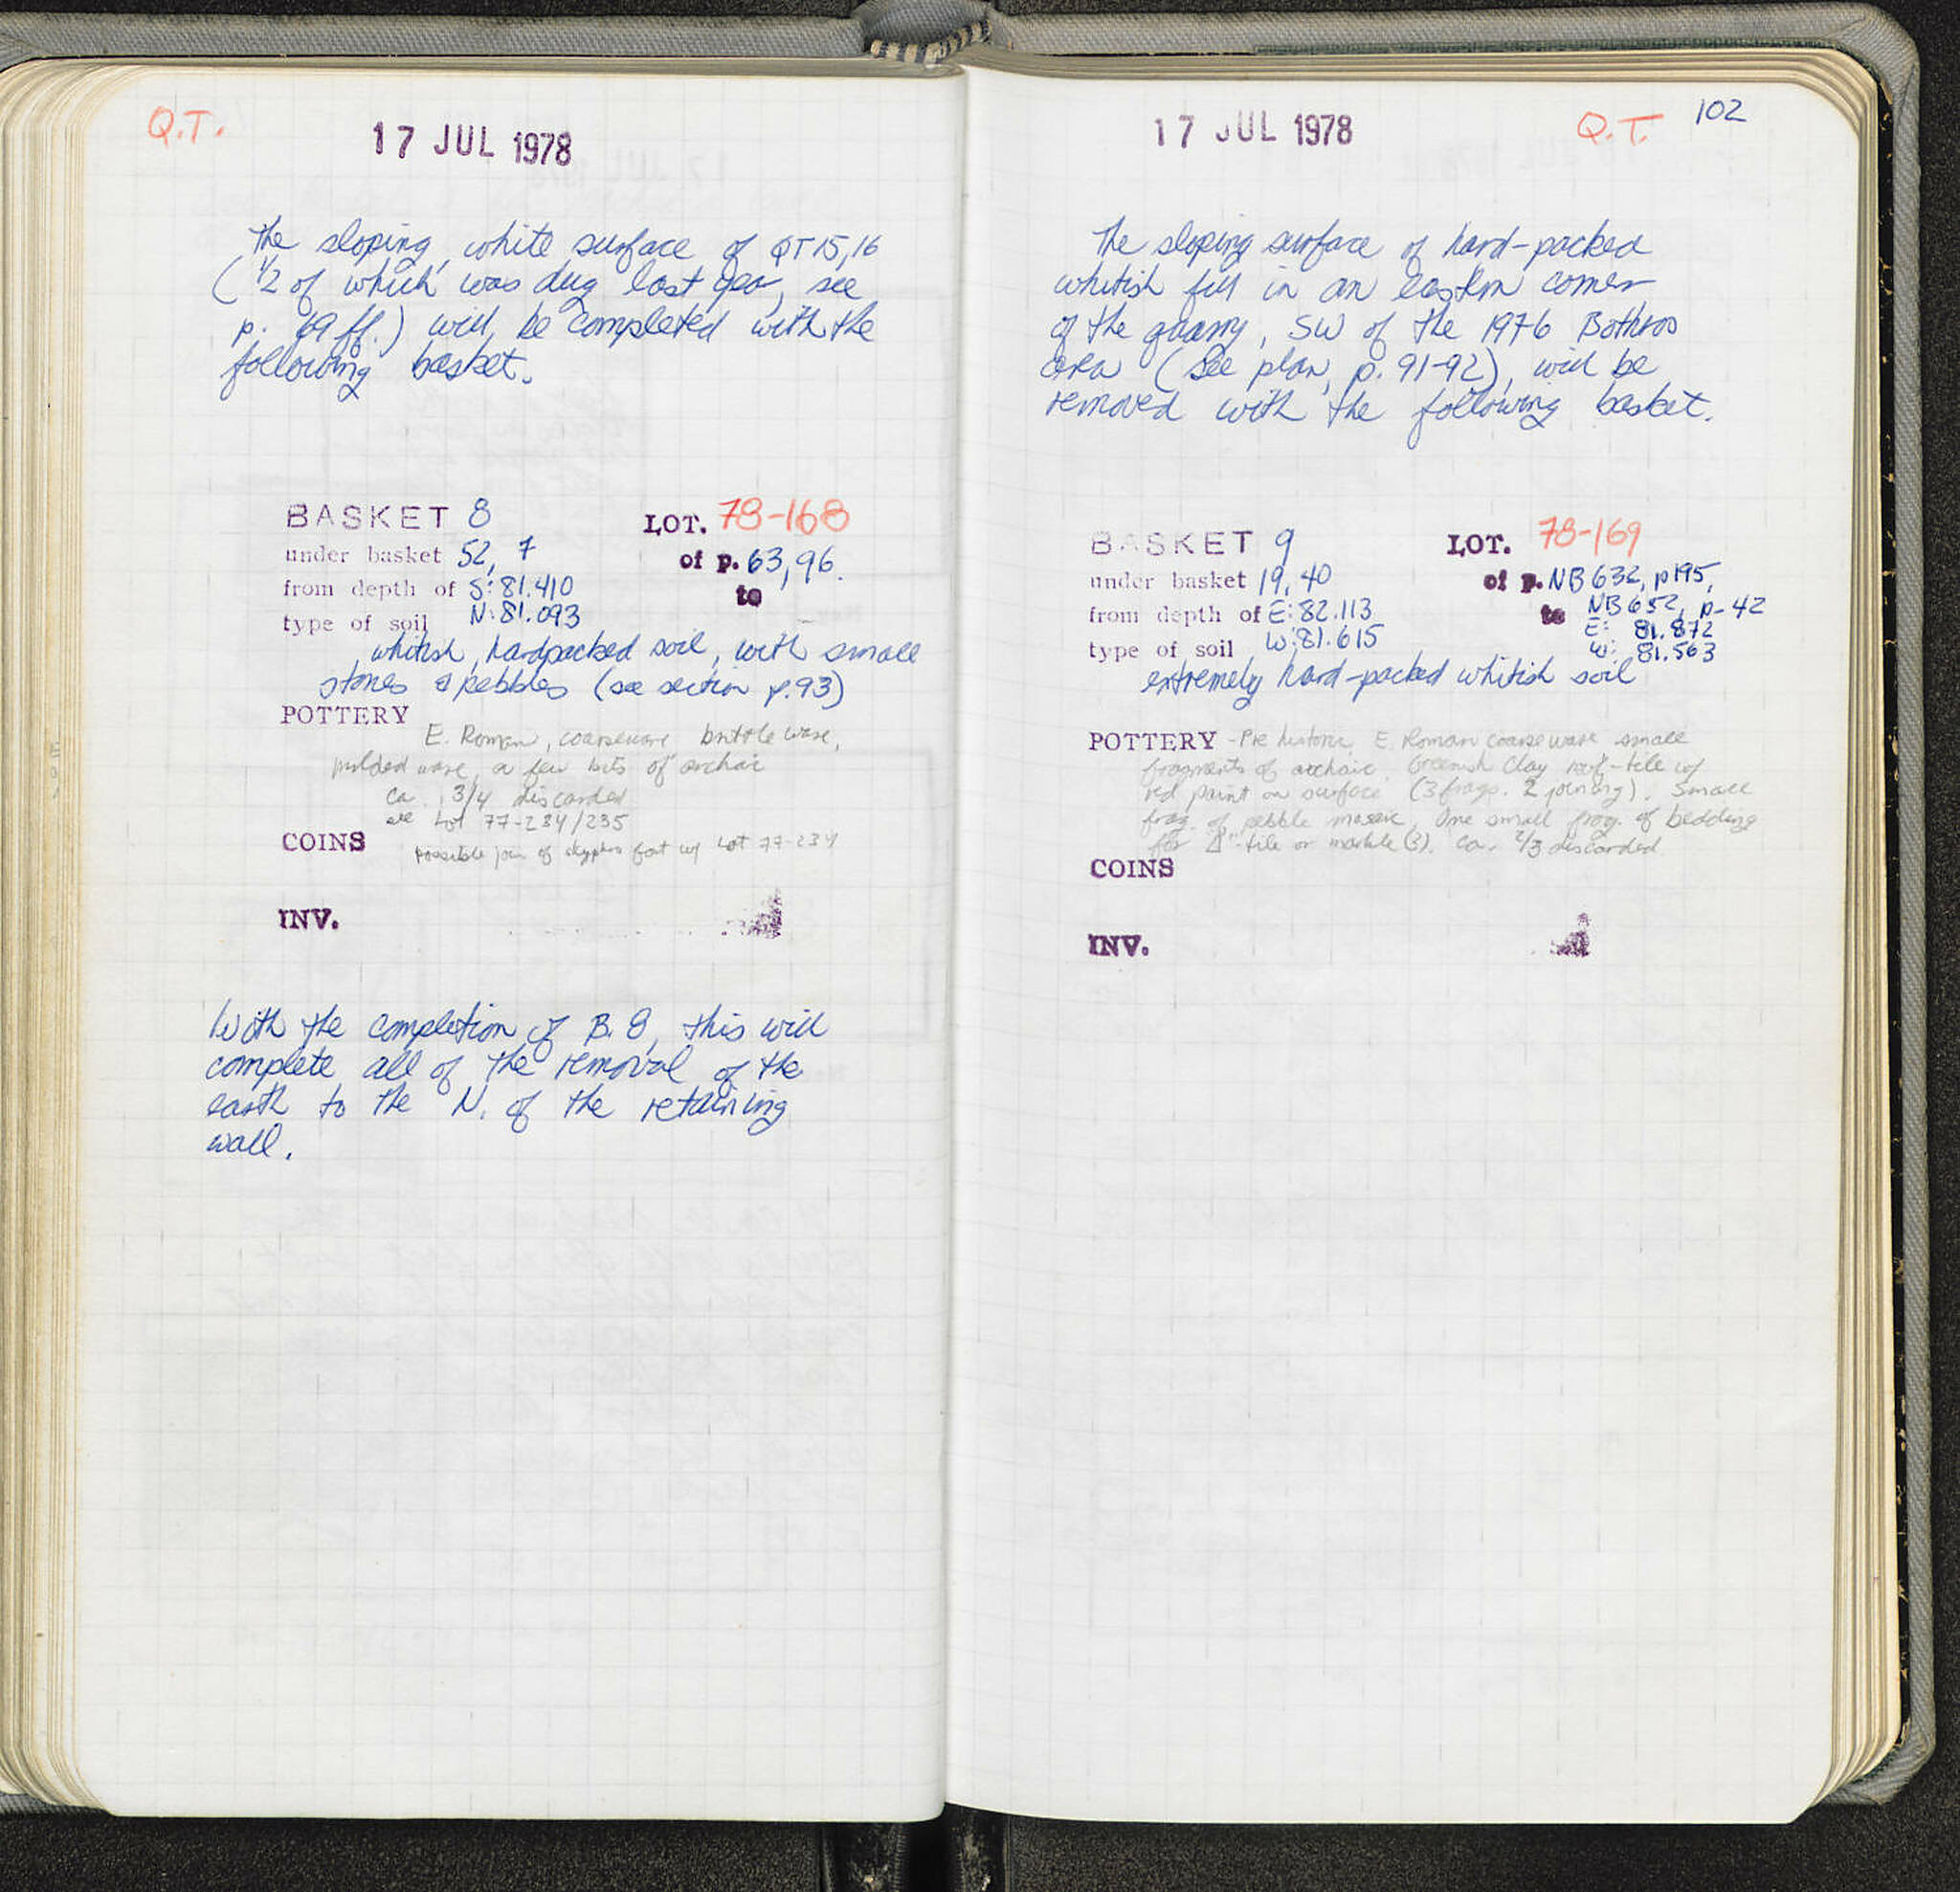 Q.T.
17 JUL 1978
The sloping, white surface of QT 15, 16
(1/2 of which was dug last year, see
p. 69 ff.) will be completed with the
following basket.
BASKET 8 LOT. 78-168
under basket 52, 7 of p. 63, 96.
from depth of S: 81.410 to
N: 81.093
type of soil
whitish, hardpacked soil, with small
stones & pebbles (see section p. 93)
POTTERY
E. Roman, coarseware brittle ware,
molded ware, a few bits of archaic
ca. 3/4 discarded
see Lot 77-234/235
COINS possible join of skyphos foot w/ Lot 77-234
INV.
With the completion of B. 8, this will
complete all of the removal of the
earth to the N. of the retaining
wall.
17 JUL 1978
Q.T. 102
The sloping surface of hard-packed
whitish fill in an eastern corner
of the quarry, SW of the 1976 Bothros
area (See plan, p. 91-92), will be
removed with the following basket.
BASKET 9 LOT. 78-169
under basket 19, 40 of p. NB 632, p 195,
NB 652, p-42
from depth of E: 82.113 to E: 81.872
type of soil W: 81.615 W: 81.563
extremely hard-packed whitish soil
POTTERY - Prehistoric, E. Roman coarse ware small
fragments of archaic. Greenish Clay roof-tile w/
red paint on surface (3 frags. 2 joining). Small
frag. of pebble mosaic, One small frag. of bedding
for tile or marble (?). ca. 2/3 discarded
COINS
INV.